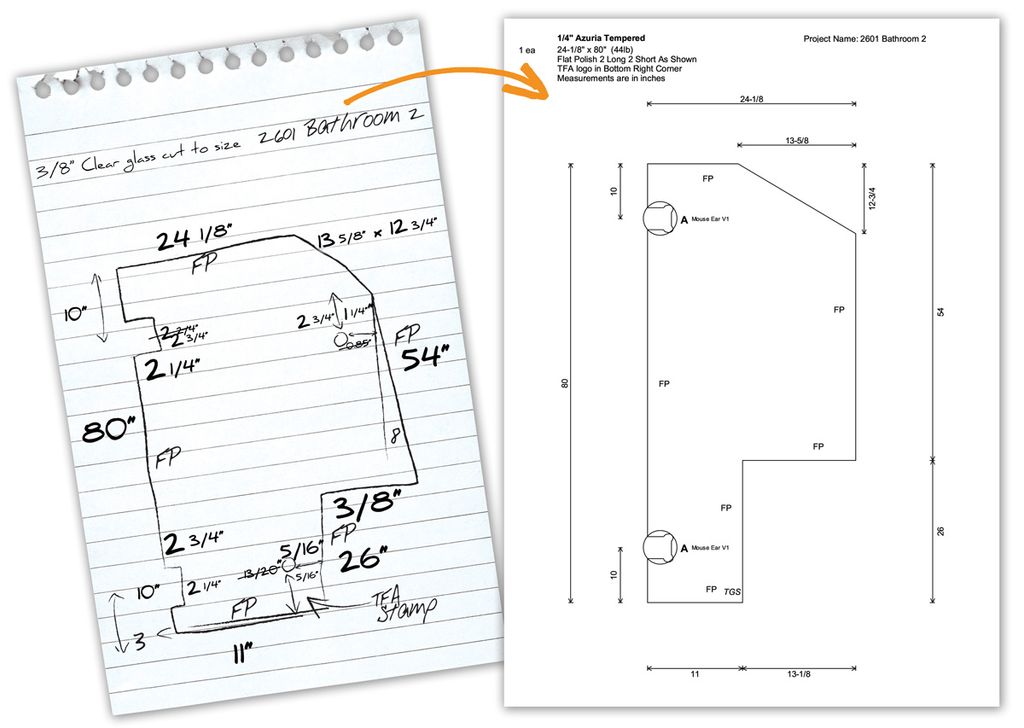 3/8" Clear glass cut to size 2601 Bathroom 2
24 1/8"
FP
13 5/8" x 12 3/4"
10"
2 3/4"
2 1/4"
2 3/4"
1 1/4"
0.85"
FP
54"
80"
FP
8
3/8"
FP
26"
2 3/4"
5/16"
13/20"
5/16"
10"
2 1/4"
FP
TFA
Stamp
3
11"
1/4" Azuria Tempered
Project Name: 2601 Bathroom 2
1 ea
24-1/8" x 80" (44lb)
Flat Polish 2 Long 2 Short As Shown
TFA logo in Bottom Right Corner
Measurements are in inches
24-1/8
13-5/8
FP
10
12-3/4
A Mouse Ear V1
FP
54
80
FP
FP
FP
26
A Mouse Ear V1
10
FP TGS
11
13-1/8